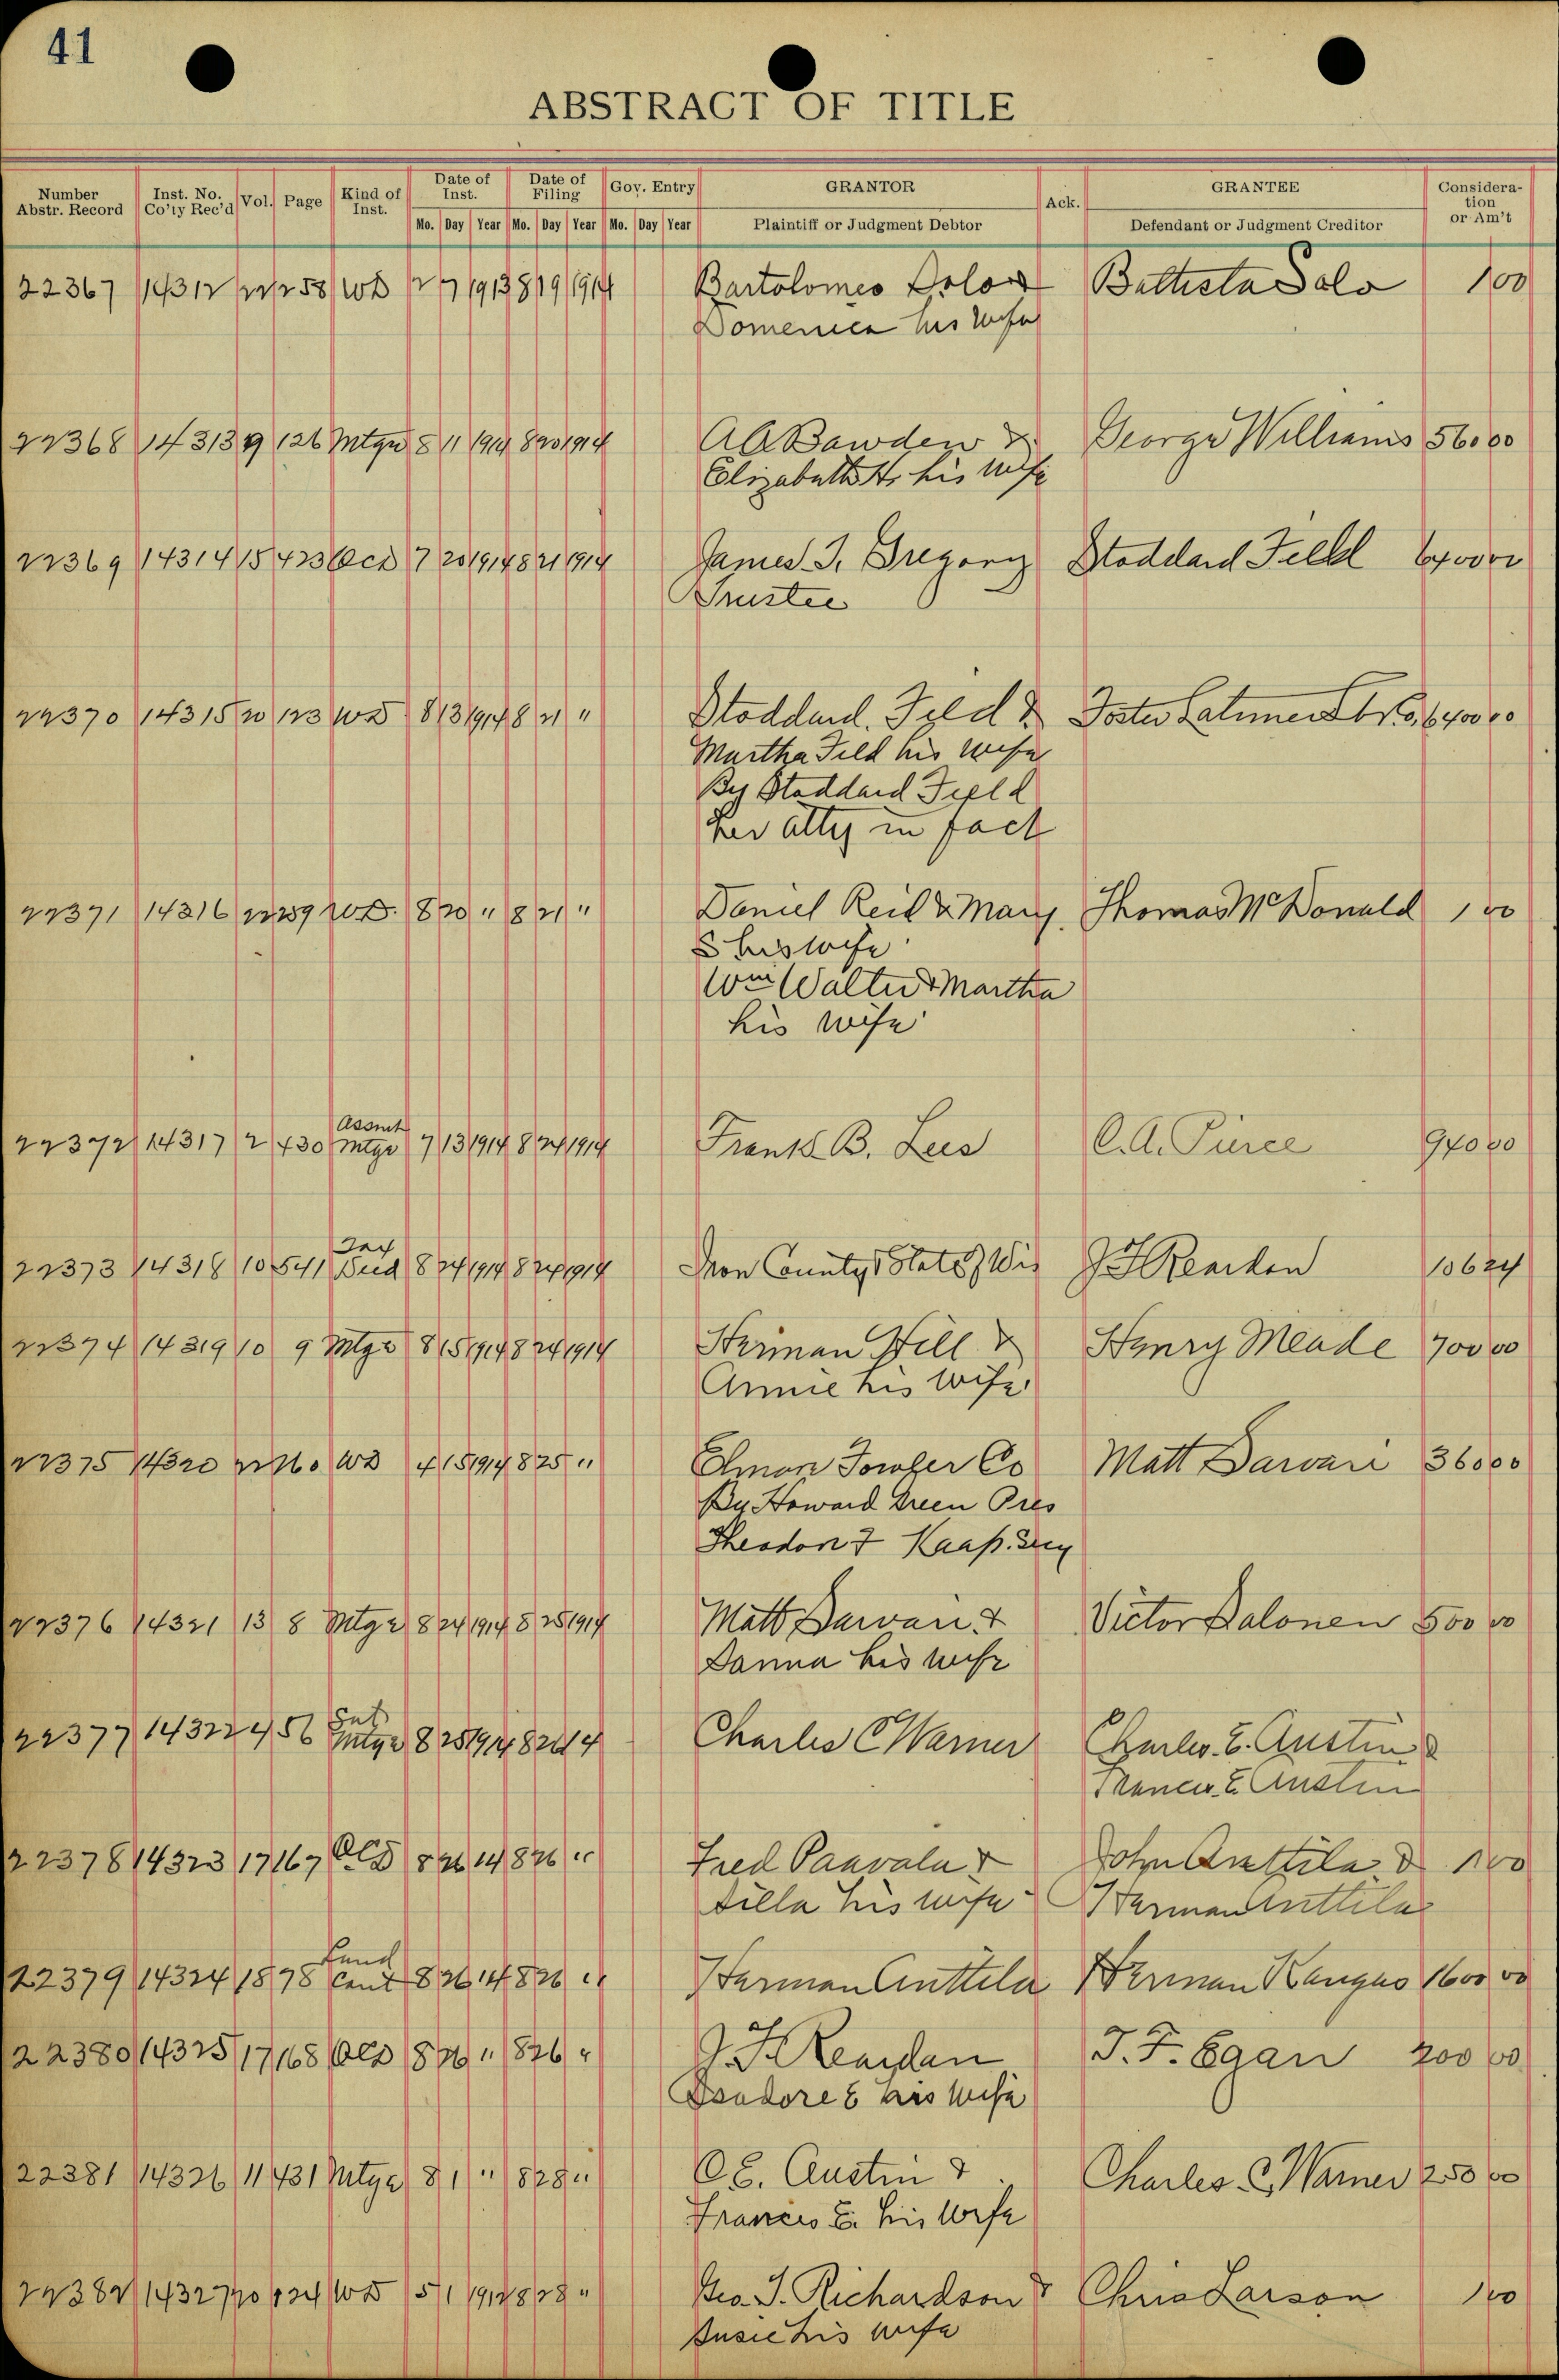 41
ABSTRACT OF TITLE
Number Abstr. Record Inst. No. Co'ty Rec'd Vol. Page Kind of Inst. Date of Inst. Date of Filing Gov. Entry GRANTOR Ack. GRANTEE Consideration or Am't
Mo. Day Year Mo. Day Year Mo. Day Year Plaintiff or Judgment Debtor Defendant or Judgment Creditor
22367 14312 22 258 WD 1913 8 19 1914 Bartolomeo Battista 100
Domenica his wife
22368 14313 9 126 Mtge 8 11 1914 8 20 1914 A A Bawden & George Williams 560 00
Elizabeth H. his wife
22369 14314 15 423 QCD 7 20 1914 8 21 1914 James J. Gregory Stoddard Field 00
Trustee
22370 14315 20 123 WD 8 13 1914 8 21 " Stoddard Field & Foster Latimer 6400 00
Martha Field his wife
By Stoddard Field
her atty in fact
22371 14316 22 259 WD. 8 20 " 8 21 " Daniel Reid & Mary Thomas McDonald 1 00
S his wife
Wm Walter & Martha
his wife
22372 14317 2 430 Assmt Mtge 7 13 1914 8 24 1914 Frank B. Lees C.A. Pierce 940 00
22373 14318 10 541 Tax Deed 8 24 1914 8 24 1914 Iron County & State of Wis J F Reardon 106 24
22374 14319 10 9 Mtge 8 15 1914 8 24 1914 Herman Hill & Henry Meade 700 00
Annie his wife
22375 14320 22 WD 4 15 1914 8 25 " Elmon Fowler Co Matt 360 00
By Howard Green Pres
Theodore F Kaap. Secy
22376 14321 13 8 Mtge 8 24 1914 8 25 1914 Matt & Victor Salonen 500 00
Sanna his wife
22377 14322 4 56 Sat Mtge 8 25 1914 8 26 14 Charles C Warner Charles E. Austin &
Francis E Austin
22378 14323 17 167 QCD 8 26 14 8 26 " Fred Paavala & John Anttila & 1 00
his wife Herman Anttila
22379 14324 18 78 Land Cont 8 26 14 8 26 " Herman Anttila Herman Kangas 1600 00
22380 14325 17 168 QCD 8 26 " 8 26 " J. F. Reardan J. F. Egan 200 00
Isadore E his wife
22381 14326 11 431 Mtge 8 1 " 8 28 " C E. Austin & Charles C. Warner 250 00
Francis E. his wife
22382 14327 20 124 WD 5 1 1912 8 28 " Geo. J. Richardson & Chris Larson 1 00
Susie his wife